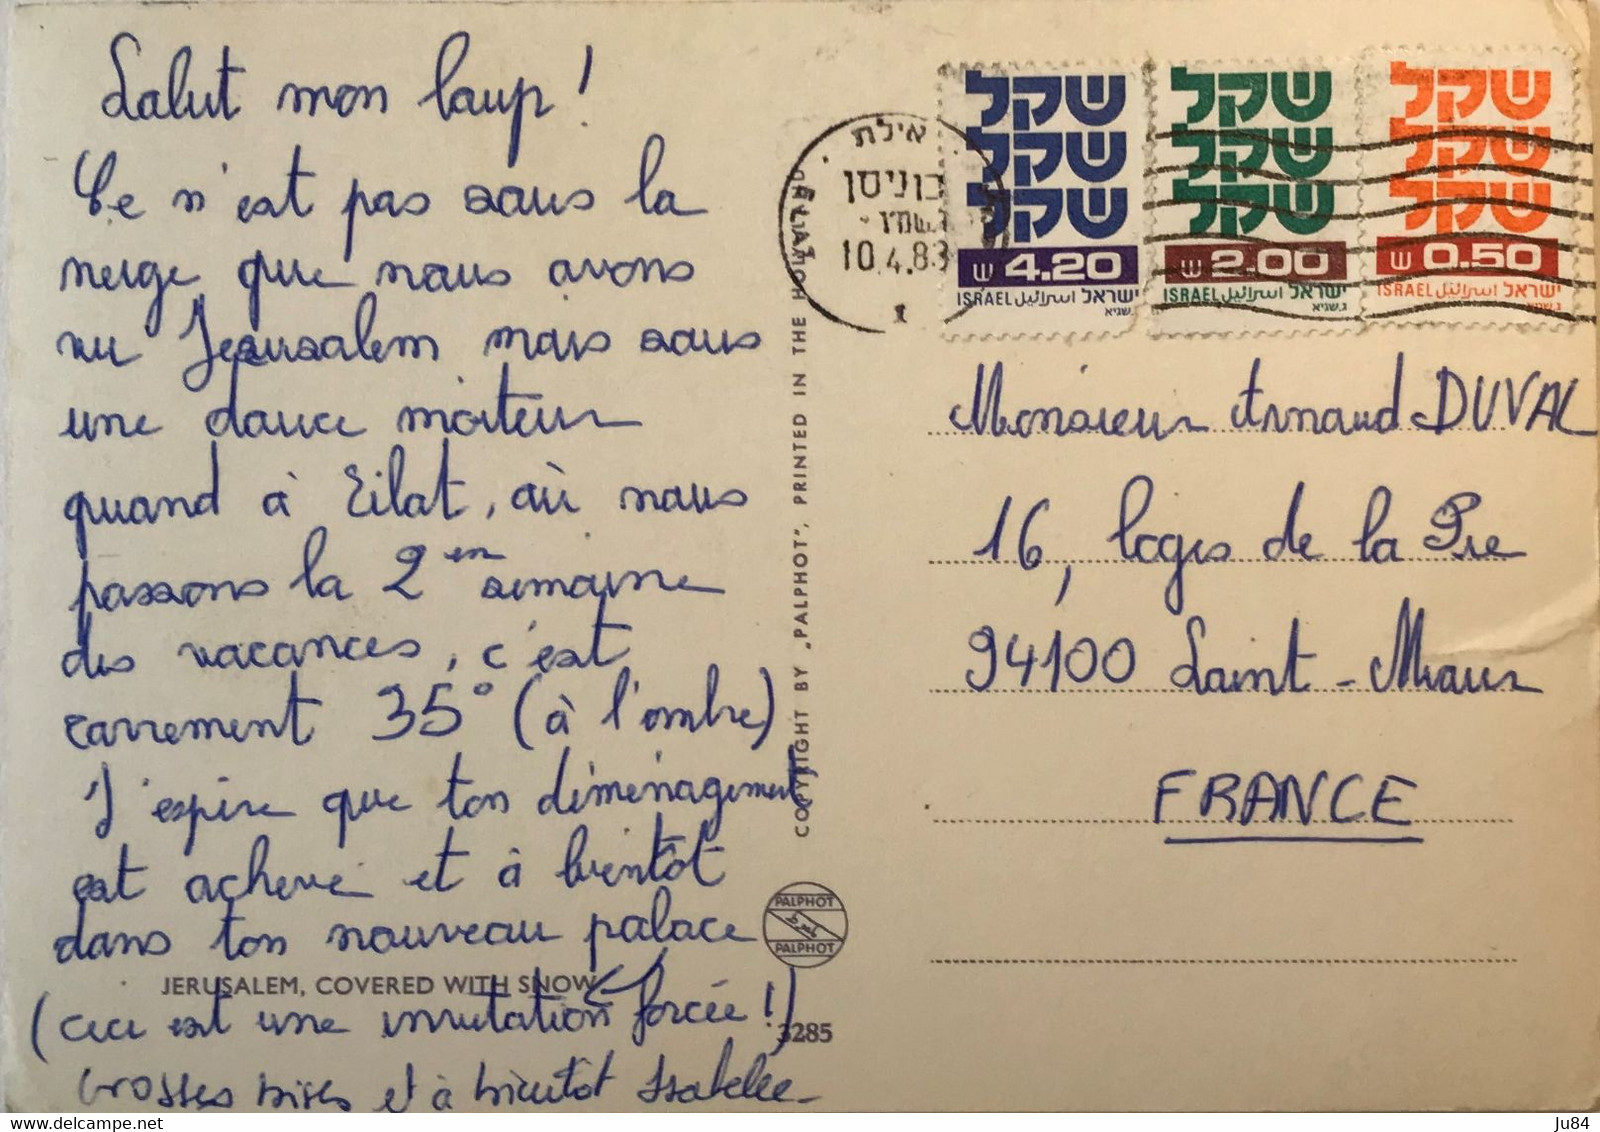 Salut mon loup !
Ce n'est pas sous la
neige que nous avons
vu Jerusalem mais sous
une douce moiteur
quand à Eilat, où nous
passons la 2 em semaine
des vacances, c'est
carrement 35° (à l'ombre)
J'espère que ton déménagement
est achevé et à bientôt
dans ton nouveau palace
(ceci est une invitation forcée !)
Grosses bises et à bientôt Isabelle
JERUSALEM, COVERED WITH SNOW
3285
COPYRIGHT BY „PALPHOT", PRINTED IN THE HOLYLAND
PALPHOT
PALPHOT
אילת
ELAT
10.4.83
שקל
שקל
שקל
4.20
ISRAEL اسرائيل ישראל
שקל
שקל
שקל
2.00
ISRAEL اسرائيل ישראל
שקל
שקל
שקל
0.50
ISRAEL اسرائيل ישראל
Monsieur Arnaud DUVAL
16, loges de la Pie
94100 Saint-Maur
FRANCE
© delcampe.net
Ju84